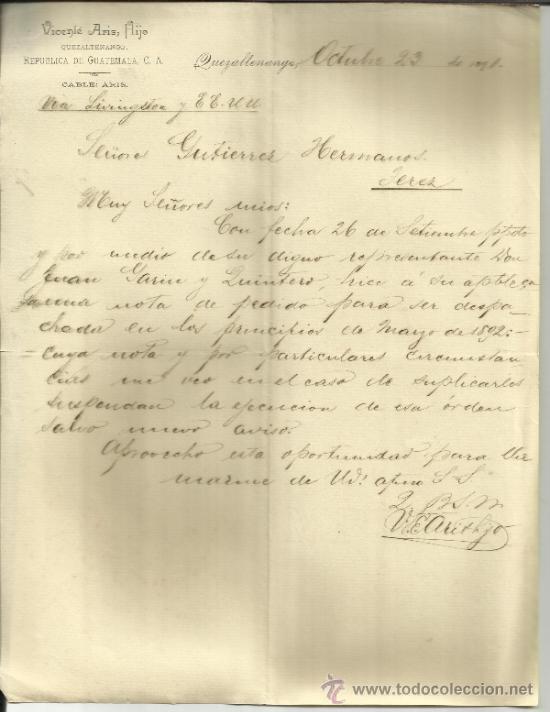 Vicente Aris, Hijo
QUEZALTENANGO,
REPÚBLICA DE GUATEMALA, C. A.
CABLE: ARIS.
Via Livingston y EE. UU
Quezaltenango, Octubre 23 de
Señores Gutierrez Hermanos.
Jerez
Muy Señores mios:
Con fecha 26 de Setiembre ppdo
y por medio de su digno representante Don
Juan Marin y Quintero, hice á su
una nota de pedido para ser despa
chada en los principios de Mayo de 1892:
cuya nota y por particulares circunstan
cias me veo en el caso de suplicarles
suspendan la ejecucion de esa órden
salvo nuevo aviso.
Aprovecho esta oportunidad para
marme de Uds. afmo S. S.
Q. B. S. M.
todocoleccion
www.todocoleccion.net